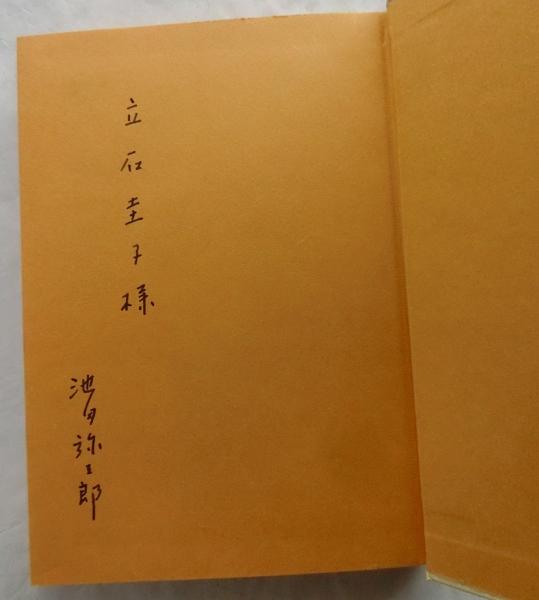 立石圭子様
池田弥三郎